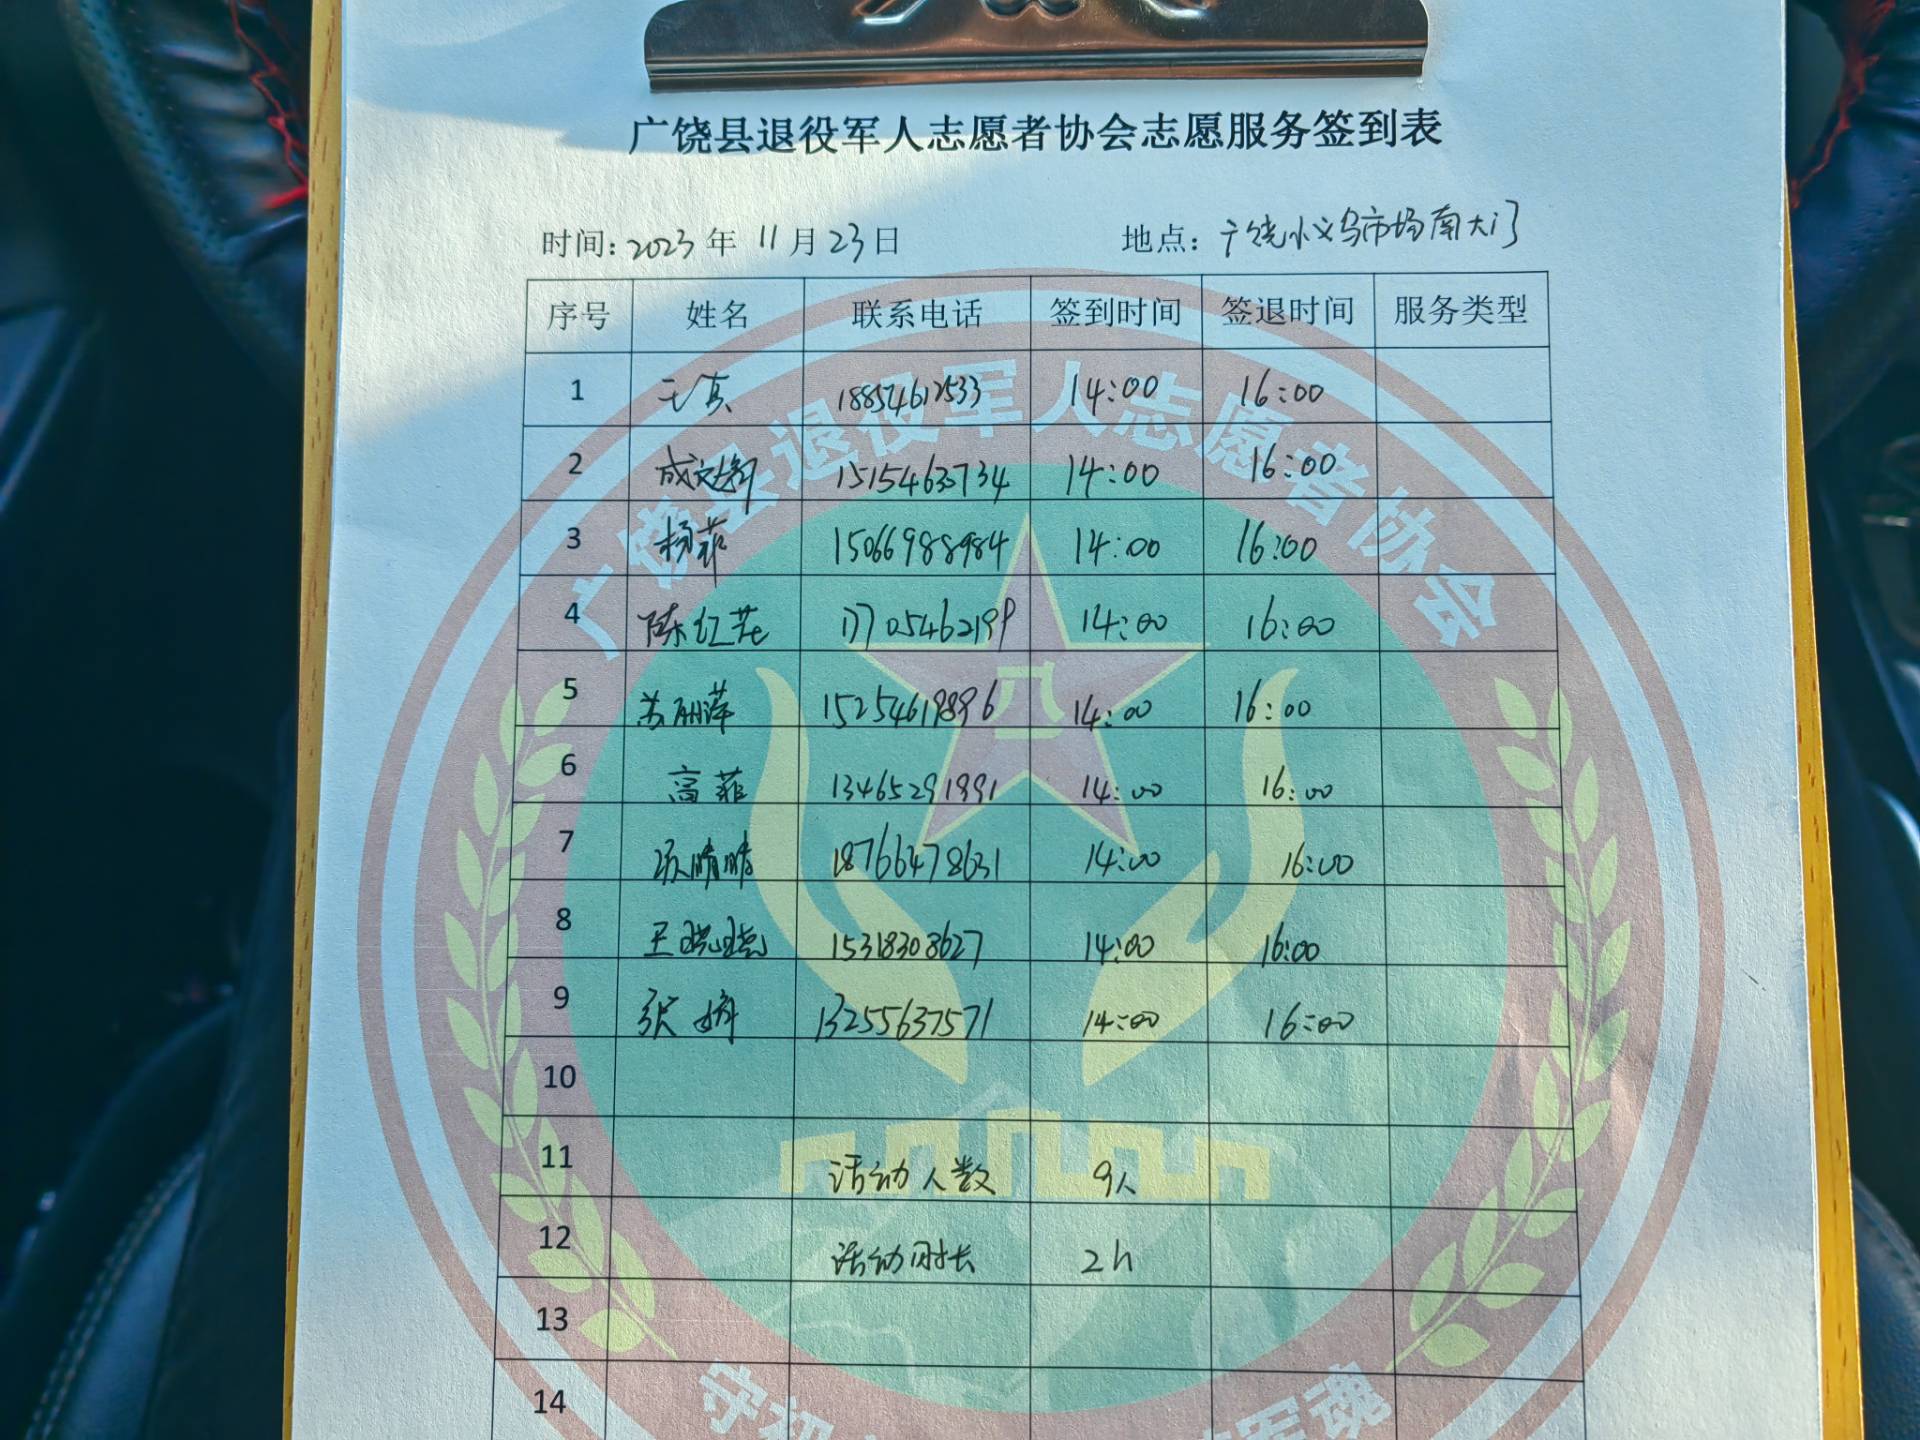 广饶县退役军人志愿者协会志愿服务签到表
时间：2023年11月23日 地点：广饶小义乌市场南大门
序号 姓名 联系电话 签到时间 签退时间 服务类型
1 18854612533 14:00 16:00
2 15154635734 14:00 16:00
3 杨菲 15066988984 14:00 16:00
4 陈红花 17705462199 14:00 16:00
5 苏丽萍 15254619896 14:00 16:00
6 高菲 13465291991 14:00 16:00
7 晴晴 18766478631 14:00 16:00
8 王晓晓 15318308627 14:00 16:00
9 张娟 13255637571 14:00 16:00
10
11 活动人数 9人
12 活动时长 2h
13
14
广饶县退役军人志愿者协会
八一
守初 军魂